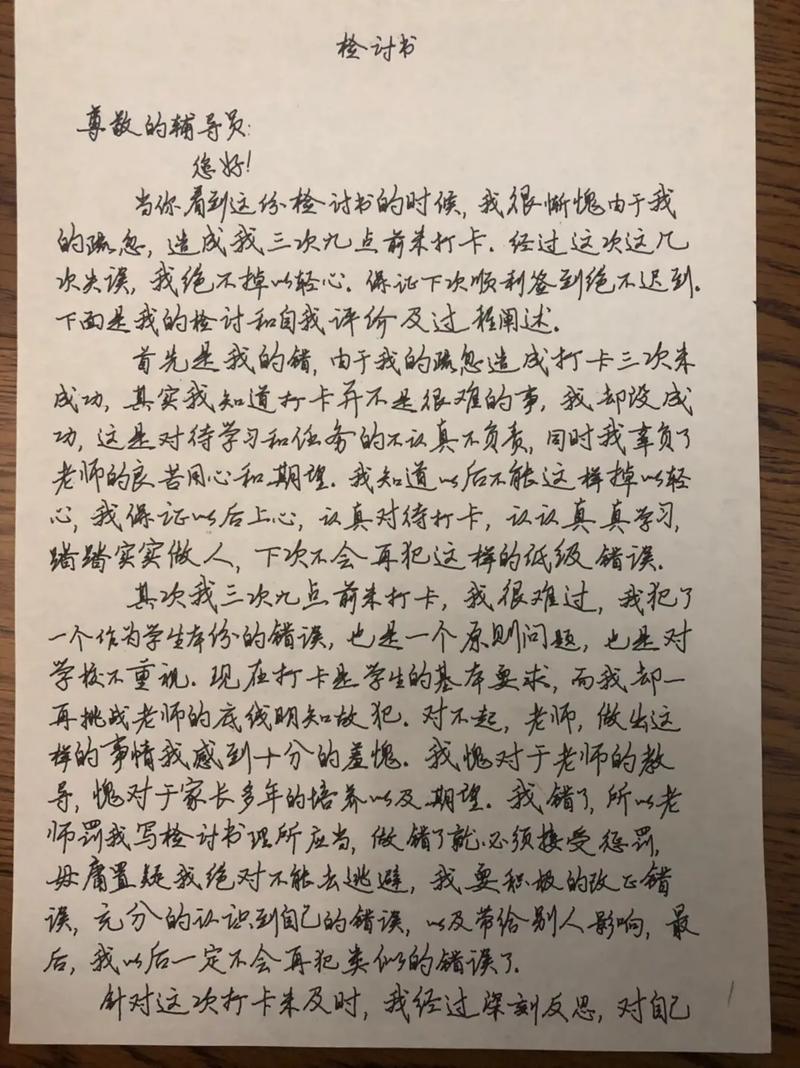 检讨书
尊敬的辅导员:
您好!
当你看到这份检讨书的时候,我很惭愧由于我
的疏忽,造成我三次九点前未打卡.经过这次这几
次失误,我绝不掉以轻心.保证下次顺利签到绝不迟到.
下面是我的检讨和自我评价及过程阐述.
首先是我的错,由于我的疏忽造成打卡三次未
成功,其实我知道打卡并不是很难的事,我却没成
功,这是对待学习和任务的不认真不负责,同时我辜负了
老师的良苦用心和期望.我知道以后不能这样掉以轻
心,我保证以后上心,认真对待打卡,认认真真学习,
踏踏实实做人,下次不会再犯这样的低级错误.
其次我三次九点前未打卡,我很难过,我犯了
一个作为学生本份的错误,也是一个原则问题,也是对
学校不重视.现在打卡是学生的基本要求,而我却一
再挑战老师的底线明知故犯.对不起,老师,做出这
样的事情我感到十分的羞愧.我愧对于老师的教
导,愧对于家长多年的培养以及期望.我错了,所以老
师罚我写检讨书理所应当,做错了就必须接受惩罚,
毋庸置疑我绝对不能去逃避,我要积极的改正错
误,充分的认识到自己的错误,以及带给别人影响,最
后,我以后一定不会再犯类似的错误了.
针对这次打卡未及时,我经过深刻反思,对自己
1